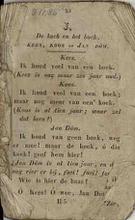 3.
De lach en het boek.
KEES, KOOS en JAN DÓM.
Kees.
Ik houd veel van een boek.
(Kees is nog maar zes jaar oud.)
Koos.
Ik houd veel van een boek;
maar nog meer van een koek.
(Koos is al tien jaar; waar zel
dat heen!)
Jan Dóm.
Ik houd van geen boek, neg
er mee! maar de koek, ô die
koek! geef hem hier!
Jan Dóm is al tien jaar, en
nog vier er bij, foei! foei! foei!
Wie is hier de baas?
Ô Kees! Ô wee, Jan Dóm
H 5